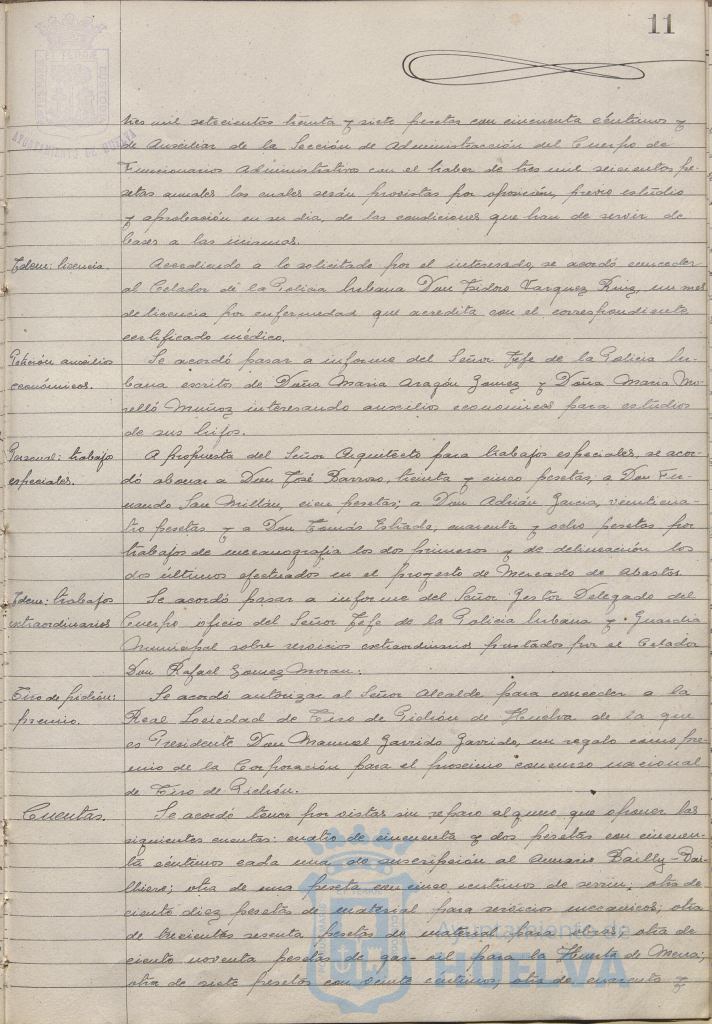 11
AYUNTAMIENTO DE HUELVA
tres mil setecientas treinta y siete pesetas con cincuenta céntimos y
de Auxiliar de la Sección de Administracción del Cuerpo de
Funcionarios Administrativos con el haber de tres mil seicientas pe-
setas anuales las cuales serán provistas por oposición, previo estudio
y aprobación en su dia, de las condiciones que han de servir de
bases a las mismas.
Idem: licencia.
Accediendo a lo solicitado por el interesado, se acordó conceder
al Celador de la Policia Urbana Don Isidoro Vazquez Ruiz, un mes
de licencia por enfermedad que acredita con el correspondiente
certificado médico.
Petición auxilios
económicos.
Se acordó pasar a informe del Señor Jefe de la Policia Ur-
bana escritos de Doña Maria Aragón Gomez y Doña Maria Mo-
relló Muñoz interesando auxilios economicos para estudios
de sus hijos.
Personal: trabajos
especiales.
A propuesta del Señor Arquitecto para trabajos especiales, se acor-
dó abonar a Don José Barroso, treinta y cinco pesetas, a Don Fer-
nando San Millán, cien pesetas; a Don Adrián Garcia, veinticua-
tro pesetas y a Don Tomás Estrada, cuarenta y ocho pesetas por
trabajos de mecanografia los dos primeros y de delineación los
dos últimos efectuados en el proyecto de Mercado de Abastos.
Idem: trabajos
extraordinarios
Se acordó pasar a informe del Señor Gestor Delegado del
Cuerpo oficio del Señor Jefe de la Policia Urbana y Guardia
Municipal sobre servicios extraordinarios prestados por el Celador
Don Rafael Gomez Moran.
Tiro de pichón:
premio.
Se acordó autorizar al Señor Alcalde para conceder a la
Real Sociedad de Tiro de Pichón de Huelva de la que
es Presidente Don Manuel Garrido Garrido, un regalo como pre-
mio de la Corporación para el proximo concurso nacional
de Tiro de Pichón.
Cuentas.
Se acordó tener por vistas sin reparo alguno que oponer las
siguientes cuentas: cuatro de cincuenta y dos pesetas con cincuen-
ta céntimos cada una de suscripción al Anuario Bailly-Bai-
lliere; otra de una peseta con cinco centimos de serrin; otra de
ciento diez pesetas de material para servicios mecanicos; otra
de trecientas sesenta pesetas de material para obras; otra de
ciento noventa pesetas de gas-oil para la Huerta de Mena;
otra de siete pesetas con veinte céntimos; otra de cuarenta y
Ayuntamiento de
HUELVA